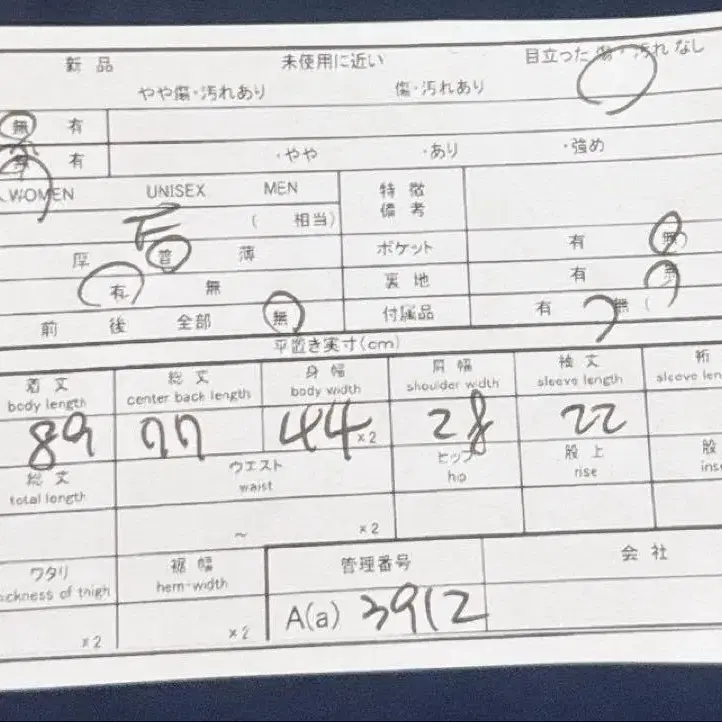 新品 未使用に近い 目立った傷・汚れなし
やや傷・汚れあり 傷・汚れあり
無 有
無 有 ・やや ・あり ・強め
WOMEN UNISEX MEN 特徴
備考
( 相当)
厚 普 薄 ポケット 有 無)
有 無 裏地 有 無
前 後 全部 無 付属品 有 無(
平置き実寸(cm)
着丈 総丈 身幅 肩幅 袖丈 裄
body length center back length body width shoulder width sleeve length sleeve len
89 77 44 ×2 28 22
総丈 ウエスト ヒップ 股上 股
total length waist hip rise ins
~ ×2
ワタリ 裾幅 管理番号 会社
ickness of thigh hem-width
×2 ×2 A(a) 3912